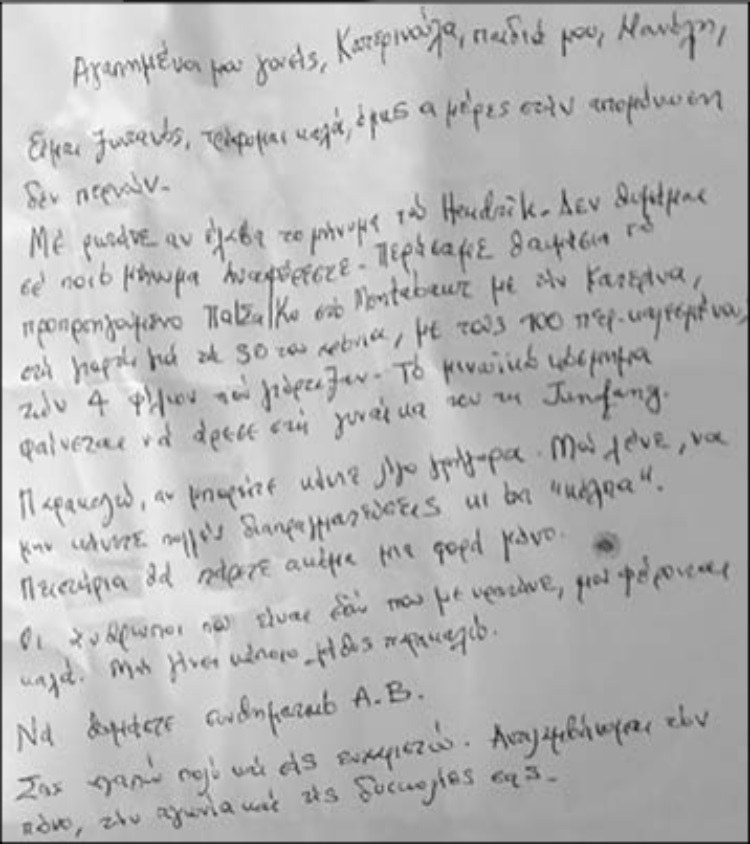 Αγαπημένοι μου γονείς, Κατερινούλα, παιδιά μου, Μανώλη,
Είμαι ζωντανός, τρέφομαι καλά, όμως οι μέρες στην απομόνωση
δεν περνούν.
Με ρωτάνε αν έλαβα το μήνυμα του Hendrik. Δεν θυμάμαι
σε ποιό μήνυμα αναφέρεστε. Περάσαμε θαυμάσια το
προπροηγούμενο Πάσχα στο Montabaur με την Κατερίνα,
στη γιορτή για τα 50 του χρόνια, με τους 100 περ. καλεσμένους
των 4 φίλων που γιόρταζαν. Το μινωϊκό κόσμημα
φαίνεται να άρεσε στη γυναίκα του τη
Παρακαλώ, αν μπορείτε κάντε λίγο γρήγορα. Μου λένε, να
μην κάνετε πολλές διαπραγματεύσεις κι όχι "κόλπα".
Πειστήρια θα πάρετε ακόμα μια φορά μόνο.
Οι άνθρωποι που είναι εδώ που με κρατάνε, μου φέρονται
καλά. Μην γίνει κάποιο λάθος παρακαλώ.
Να θυμάστε συνθηματικό Α.Β.
Σας αγαπώ πολύ και σας ευχαριστώ. Αντιλαμβάνομαι τον
πόνο, την αγωνία και τις δυσκολίες σας.